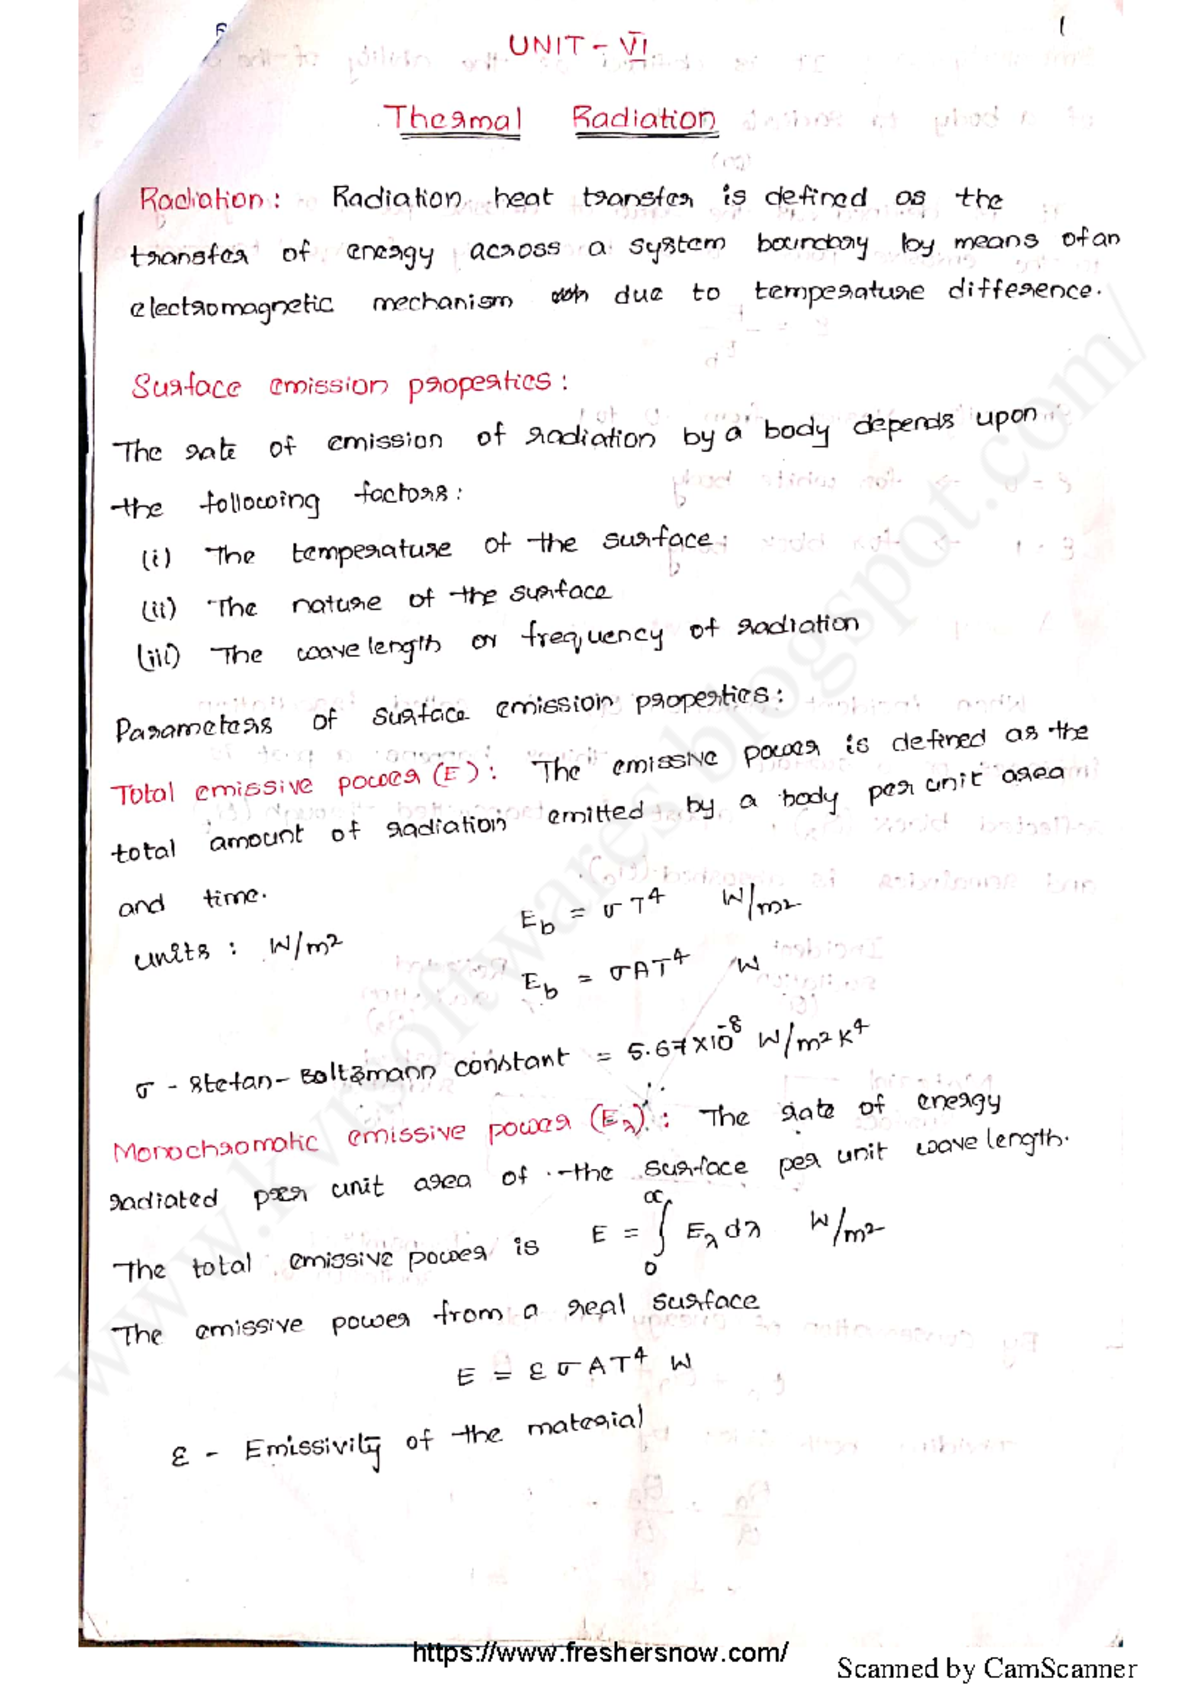 1
UNIT - VI
Thermal Radiation
Radiation: Radiation heat transfer is defined as the
transfer of energy across a system boundary by means of an
electromagnetic mechanism due to temperature difference.
Surface emission properties:
The rate of emission of radiation by a body depends upon
the following factors:
(i) The temperature of the surface
(ii) The nature of the surface
(iii) The wave length or frequency of radiation
Parameters of surface emission properties:
Total emissive power (E): The emissive power is defined as the
total amount of radiation emitted by a body per unit area
and time.
units: W/m²
E_b = σT⁴ W/m²
E_b = σAT⁴ W
σ - Stefan-Boltzmann constant = 5.67×10⁻⁸ W/m²K⁴
Monochromatic emissive power (E_λ): The rate of energy
radiated per unit area of the surface per unit wave length.
The total emissive power is E = ∫₀^∞ E_λ dλ W/m²
The emissive power from a real surface
E = εσAT⁴ W
ε - Emissivity of the material
www.kvrsoftwares.blogspot.com/
https://www.freshersnow.com/
Scanned by CamScanner